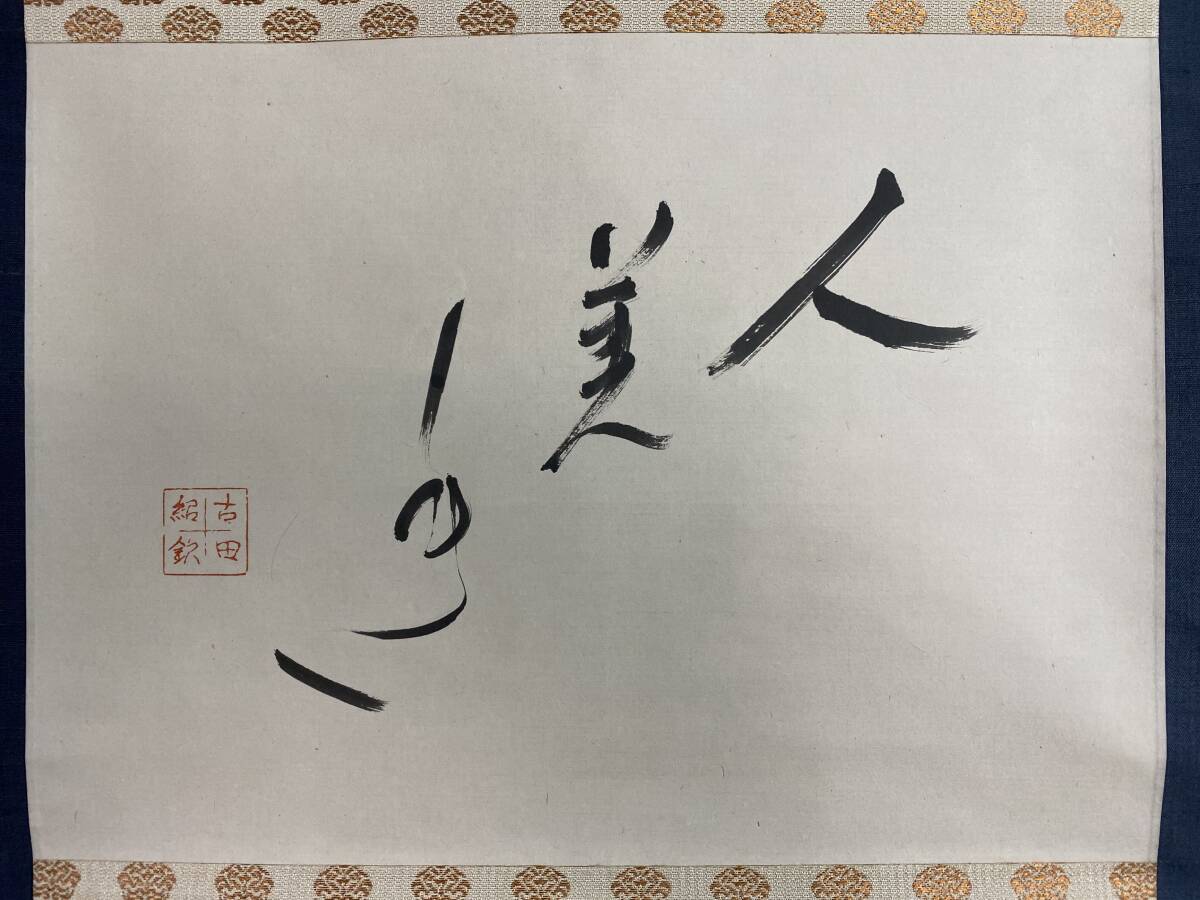 人美
古田
紹欽